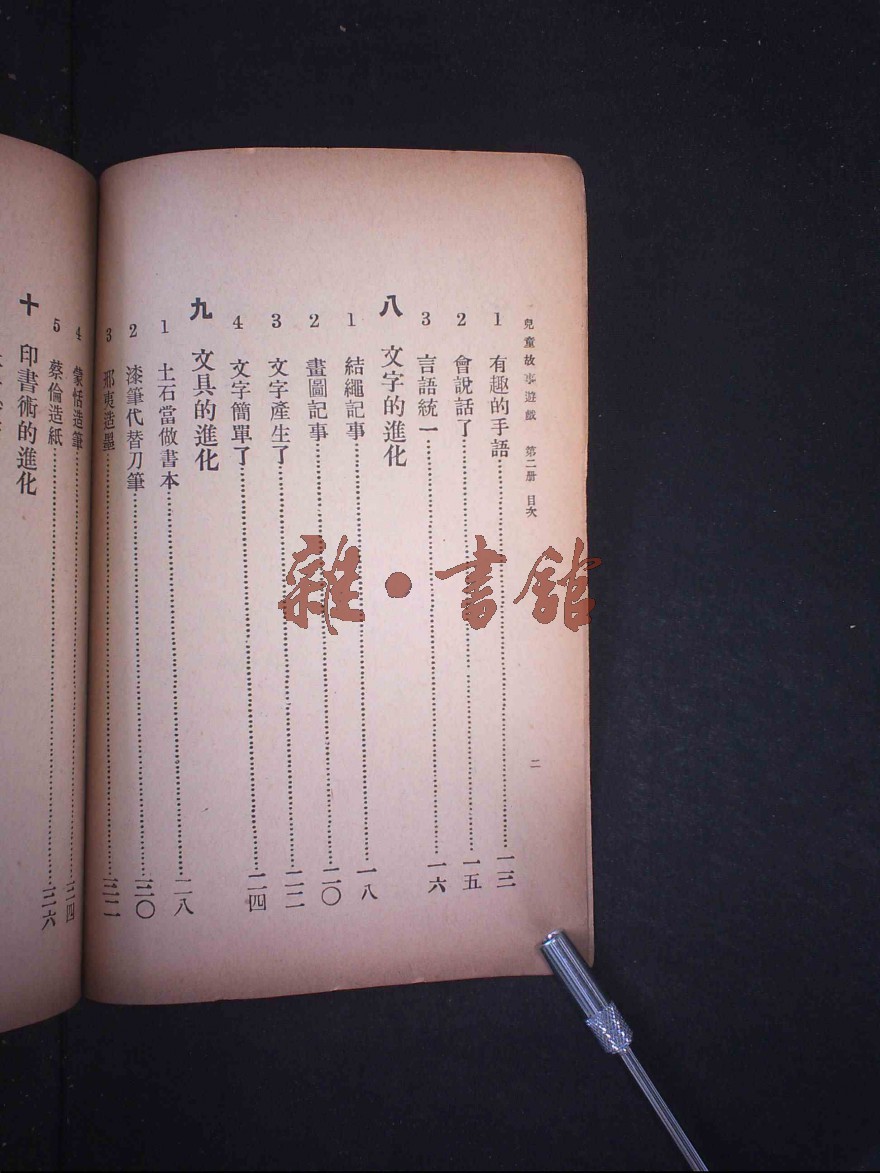 兒童故事遊戲 第二册 目次 二
1 有趣的手語 一三
2 會說話了 一五
3 言語統一 一六
八 文字的進化
1 結繩記事 一八
2 畫圖記事 二〇
3 文字產生了 二二
4 文字簡單了 二四
九 文具的進化
1 土石當做書本 二八
2 漆筆代替刀筆 三〇
3 邢夷造墨 三二
4 蒙恬造筆 三四
5 蔡倫造紙 三六
十 印書術的進化
雜·書館